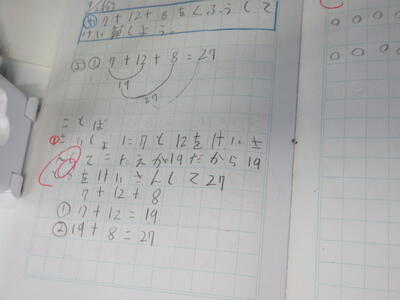 め 7+12+8をくふうして
けい算しよう。
② ① 7 + 12 + 8 = 27
19
27
ことば
さいしょに7と12をけいさ
んしてこたえが19だから19
と8をけいさんして27
7+12+8
① 7+12=19
② 19+8=27